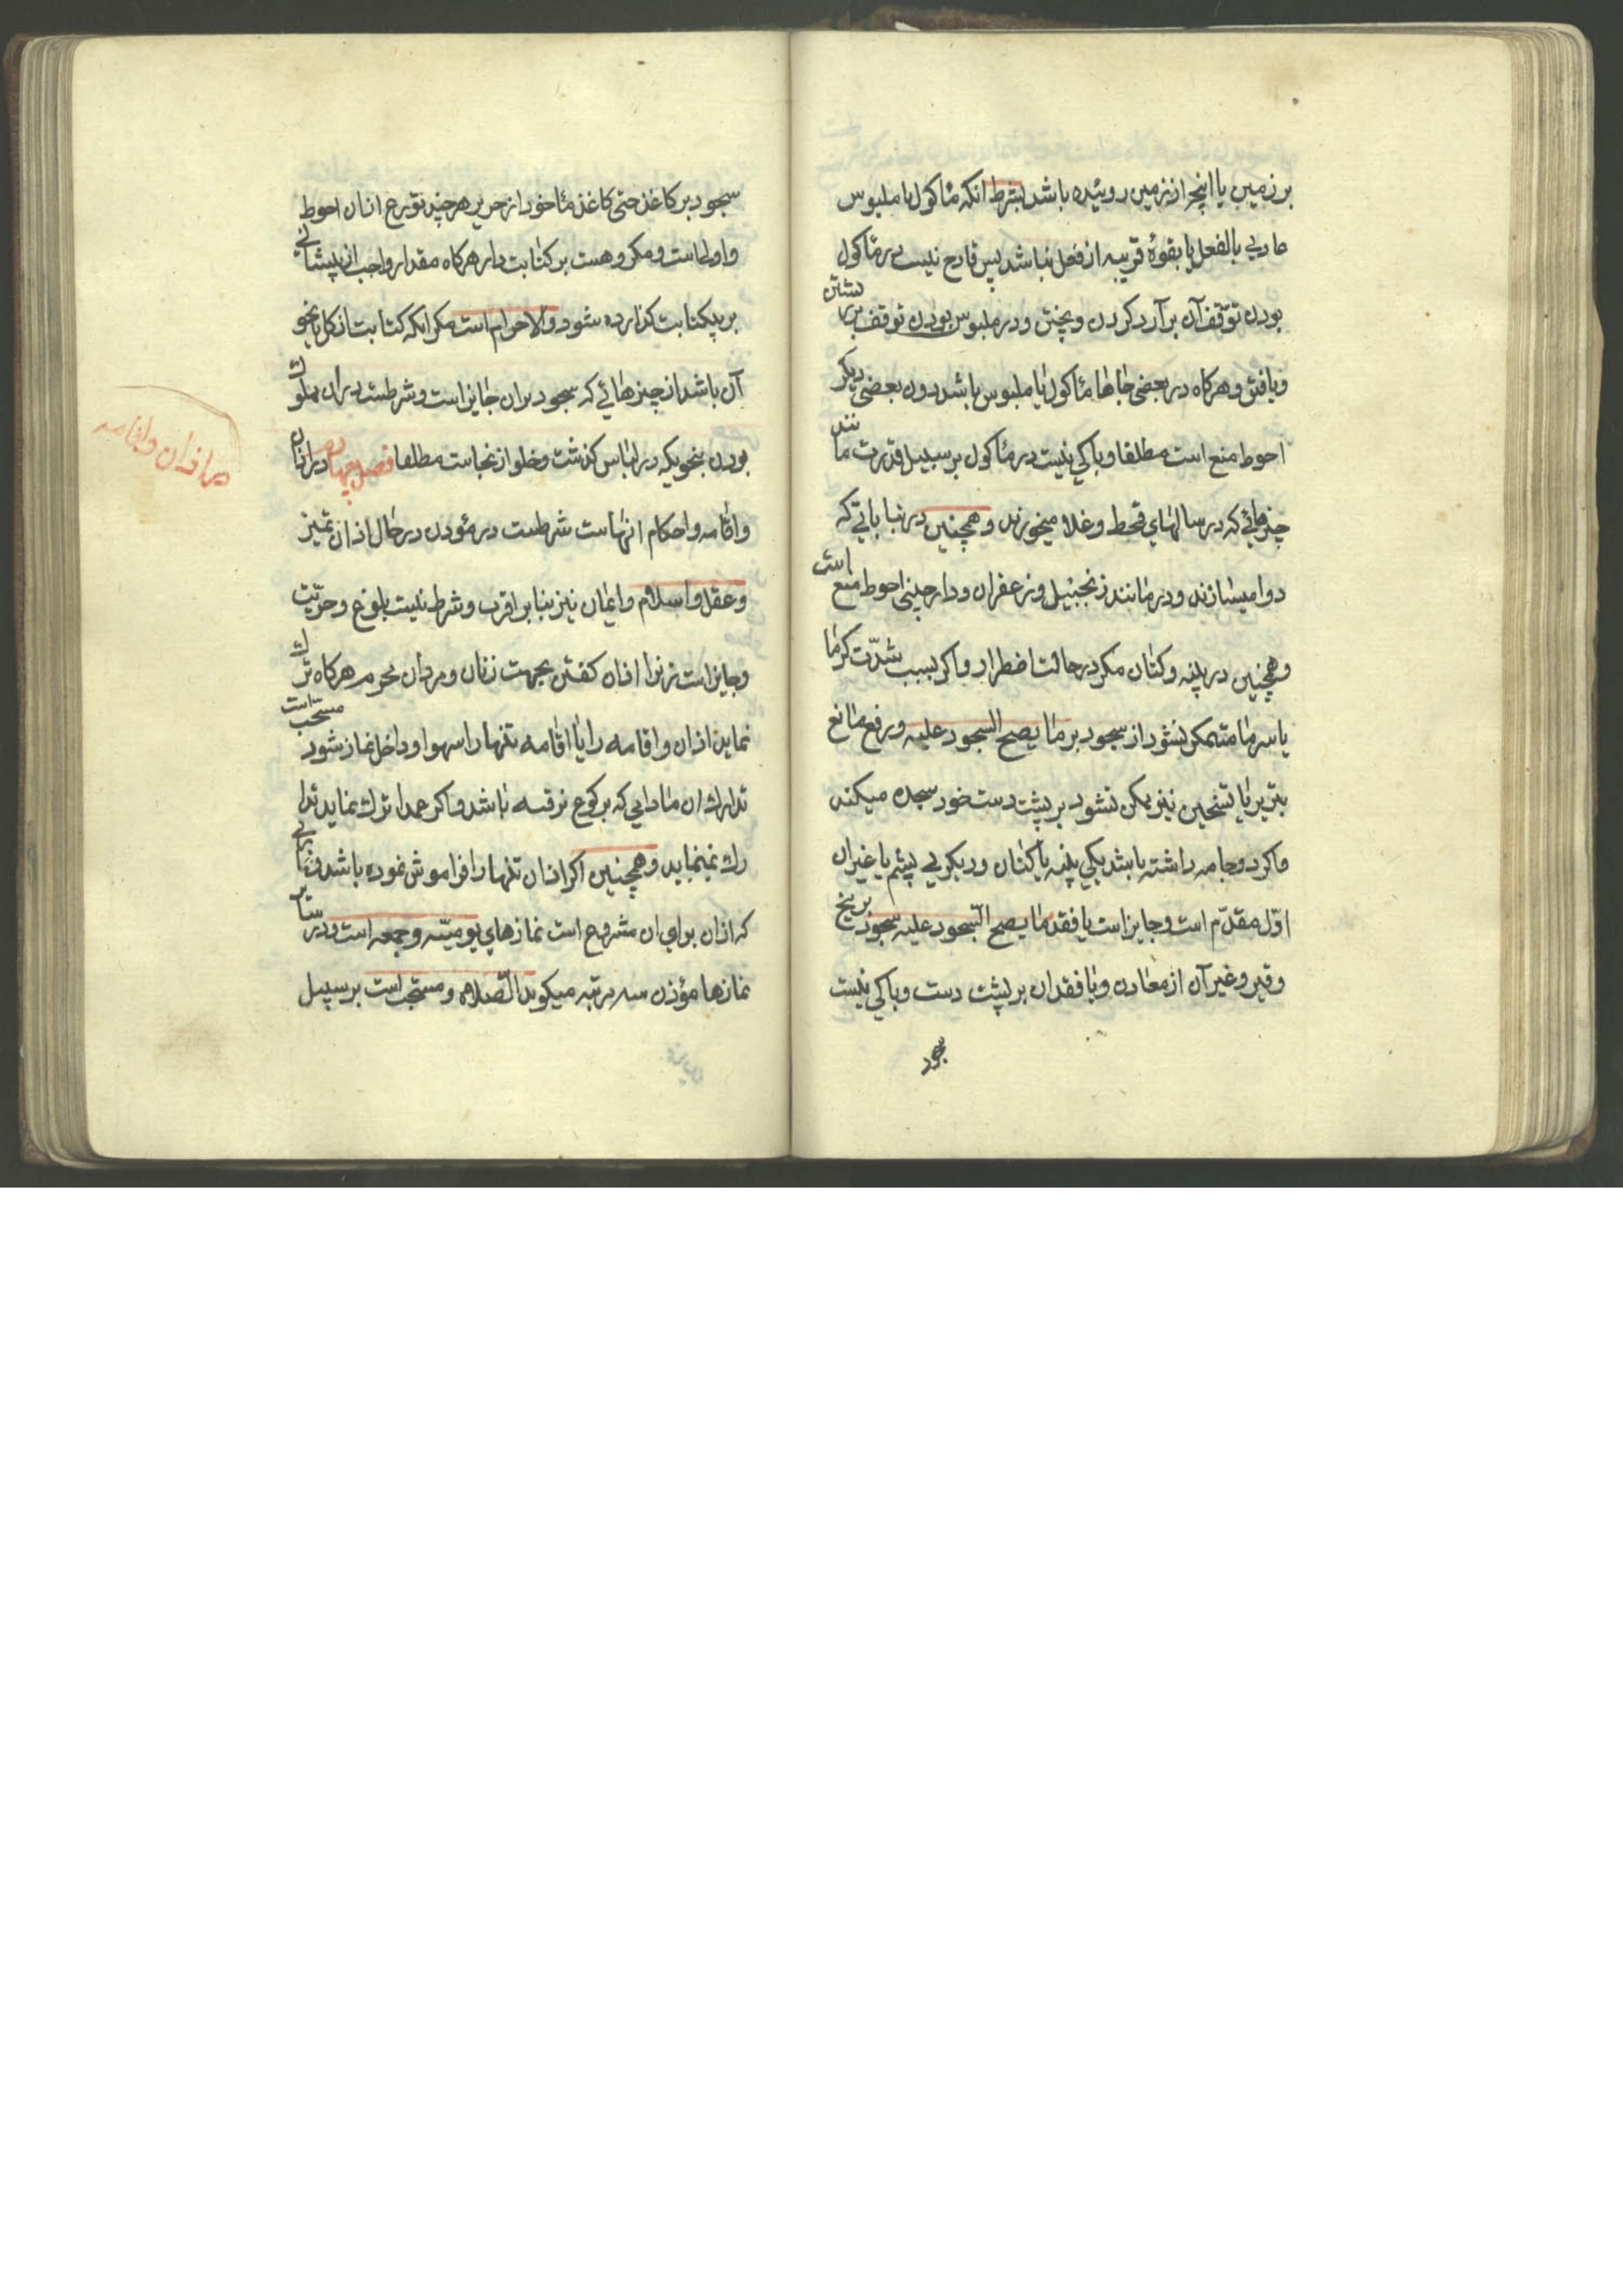 بر زمین یا انچه از زمین روئیده باشد بشرط انکه مأکول یا ملبوس
عادی بالفعل یا بقوهٔ قریبه از فعل نباشد پس قادح نیست در مأکول
بودن توقف آن بر آرد کردن و پختن و در ملبوس بودن توقف بر رشتن
و بافتن و هرکاه در بعضی جاها مأکول یا ملبوس باشد دون بعضی دیکر
احوط منع است مطلقا و باکی نیست در مأکول بر سبیل قدرت مانند
چیزهائی که در سالهای قحط و غلا میخورند و همچنین در نباتاتی که
دوا میسازند و در مانند زنجبیل و زعفران و دارچینی احوط منع است
و همچنین در پنبه و کتان مکر در حالت اضطرار و اکر بسبب شدّت کرما
یا سرما متمکن نشود از سجود بر ما یصح السجود علیه و رفع مانع
بتبرید یا تسخین نیز ممکن نشود بر پشت دست خود سجده میکند
و اکر دو جامه داشته باشد یکی پنبه یا کتان و دیکری پشم یا غیر ان
اوّل مقدّم است و جایز است با فقد ما یصح السجود علیه سجود بر یخ
و قیر و غیر آن از معادن و با فقدان بر پشت دست و باکی نیست
سجود
سجود بر کاغذ حتی کاغذ مأخوذ از حریر هرچند تورع از ان احوط
و اولی است و مکروهست بر کتابت دار هرکاه مقدار واجب از پیشانی
بر بیکتابت کذارده شود و الا حرام است مکر انکه کتابت از کل یا نحو
آن باشد از چیزهائی که سجود بر ان جایز است و شرطست در ان مملوک
بودن بنحویکه در لباس کذشت و خلو از نجاست مطلقا فصل چهارم در اذان
و اقامه و احکام انهاست شرطست در مؤذن در حال اذان تمیز
و عقل و اسلام و ایمان نیز بنا بر اقرب و شرط نیست بلوغ و حرّیت
و جایز است زنرا اذان کفتن بجهت زنان و مردان محرم هرکاه ترک
نماید اذان و اقامه را یا اقامه تنها را سهوا و داخل نماز شود مستحب است
تدارک ان مادامی که برکوع نرفته باشد و اکر عمدا ترک نماید تدا
رک نمینماید و همچنین اکر اذان تنها را فراموش نموده باشد و نمازهائی
که اذان برای ان مشروع است نمازهای یومیّه و جمعه است و در سایر
نمازها مؤذن سه مرتبه میکوید الصلاه و مستحب است بر سبیل
در اذان و اقامه